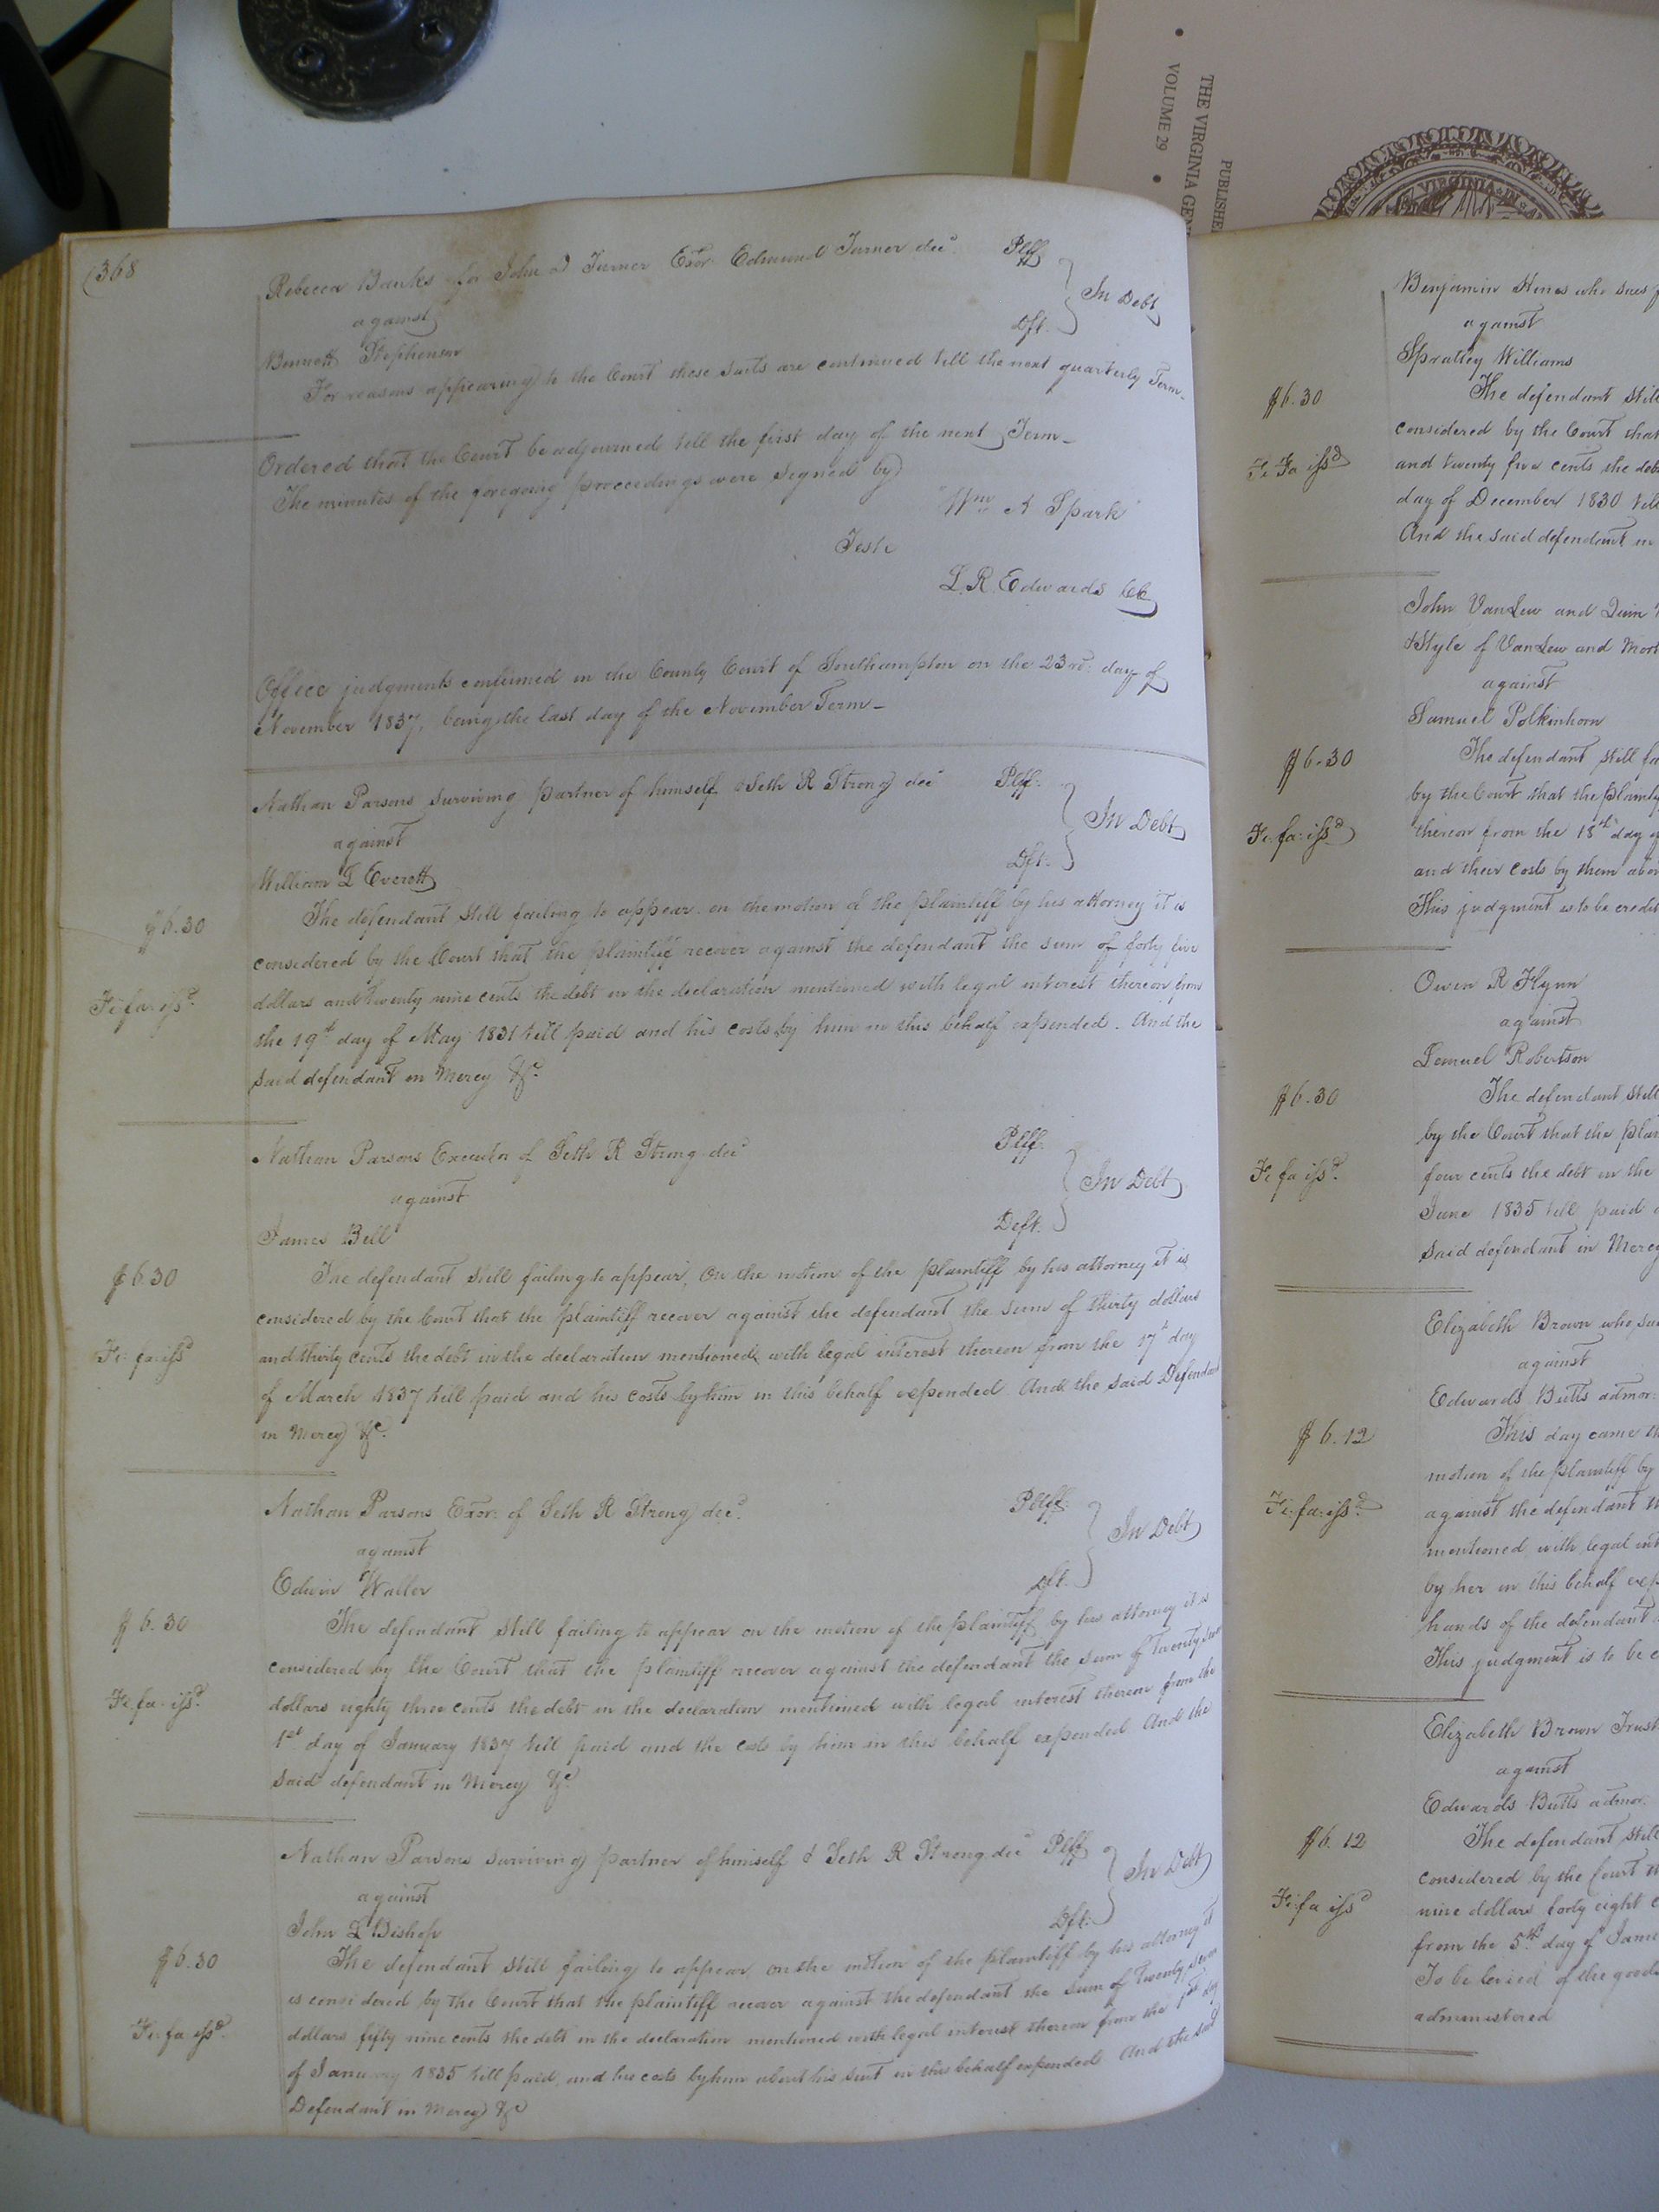 VOLUME 29 •
THE VIRGINIA GE
PUBLISHE
VIRGINIA IN A
368
Rebecca Banks for John D Turner Exor: Edmund Turner decd. Plff.
against In Debt
Bennett Stephenson Dft.
For reasons appearing to the Court these suits are continued till the next quarterly Term
Ordered that the Court be adjourned till the first day of the next Term
The minutes of the foregoing proceedings were signed by
"Wm A Spark"
Teste
L.R. Edwards Ck
Office judgments confirmed in the County Court of Southampton on the 23rd. day of
November 1837, being the last day of the November Term
Nathan Parsons surviving partner of himself & Seth R Strong decd Plff.
against In Debt
William L Everett Dft.
$6.30
The defendant still failing to appear on the motion of the plaintiff by his attorney it is
considered by the Court that the plaintiff recover against the defendant the sum of forty five
dollars and twenty nine cents the debt in the declaration mentioned with legal interest thereon from
Fi: fa: issd.
the 19th day of May 1831 till paid and his costs by him in this behalf expended. And the
said defendant in Mercy &c.
Nathan Parsons Executor of Seth R Strong decd Plff.
against In Debt
James Bell Deft.
$6 30
The defendant still failing to appear, On the motion of the plaintiff by his attorney it is
considered by the Court that the plaintiff recover against the defendant the sum of thirty dollars
Fi: fa: issd
and thirty cents the debt in the declaration mentioned with legal interest thereon from the 17th day
of March 1837 till paid and his costs by him in this behalf expended And the said Defendant
in Mercy &c.
Nathan Parsons Exor: of Seth R Strong decd. Pltff.
against In Debt
Edwin Waller Dft.
$6.30
The defendant still failing to appear on the motion of the plaintiff by his attorney it is
considered by the Court that the plaintiff recover against the defendant the sum of Twenty
Fi: fa: issd.
dollars eighty three cents the debt in the declaration mentioned with legal interest thereon from the
1st day of January 1837 till paid and the costs by him in this behalf expended And the
said defendant in Mercy &c
Nathan Parsons surviving partner of himself & Seth R Strong decd Plff
against In Debt
John L Bishop Dft.
$6.30
The defendant still failing to appear on the motion of the plaintiff by his attorney it
is considered by the Court that the plaintiff recover against the defendant the sum of Twenty seven
Fi: fa issd.
dollars fifty nine cents the debt in the declaration mentioned with legal interest thereon from the 1st day
of January 1835 till paid and his costs by him about his suit in this behalf expended And the said
Defendant in Mercy &c
Benjamin Hines who sues f
against
Spratley Williams
$6.30
The defendant still
considered by the Court that
Fi Fa issd
and twenty five cents the deb
day of December 1830 till
And the said defendant in
John VanLew and
Style of VanLew and Mor
against
Samuel Polkinhorn
$6.30
The defendant still fa
by the Court that the plainti
Fi: fa: issd
thereon from the 18th day o
and their costs by them abou
This judgment is to be credit
Owen R Flynn
against
Lemuel Robertson
$6.30
The defendant still
by the Court that the plai
Fi fa issd.
four cents the debt in the
June 1835 till paid a
said defendant in Mercy
Elizabeth Brown who su
against
Edwards Butts admor:
$6.12
This day came th
motion of the plaintiff by
Fi: fa: issd.
against the defendant th
mentioned with legal int
by her in this behalf exp
hands of the defendant
This judgment is to be c
Elizabeth Brown Trust
against
Edwards Butts admor.
$6.12
The defendant still
considered by the Court th
Fi: fa issd
nine dollars forty eight c
from the 5th day of Janu
To be levied of the goods
administered